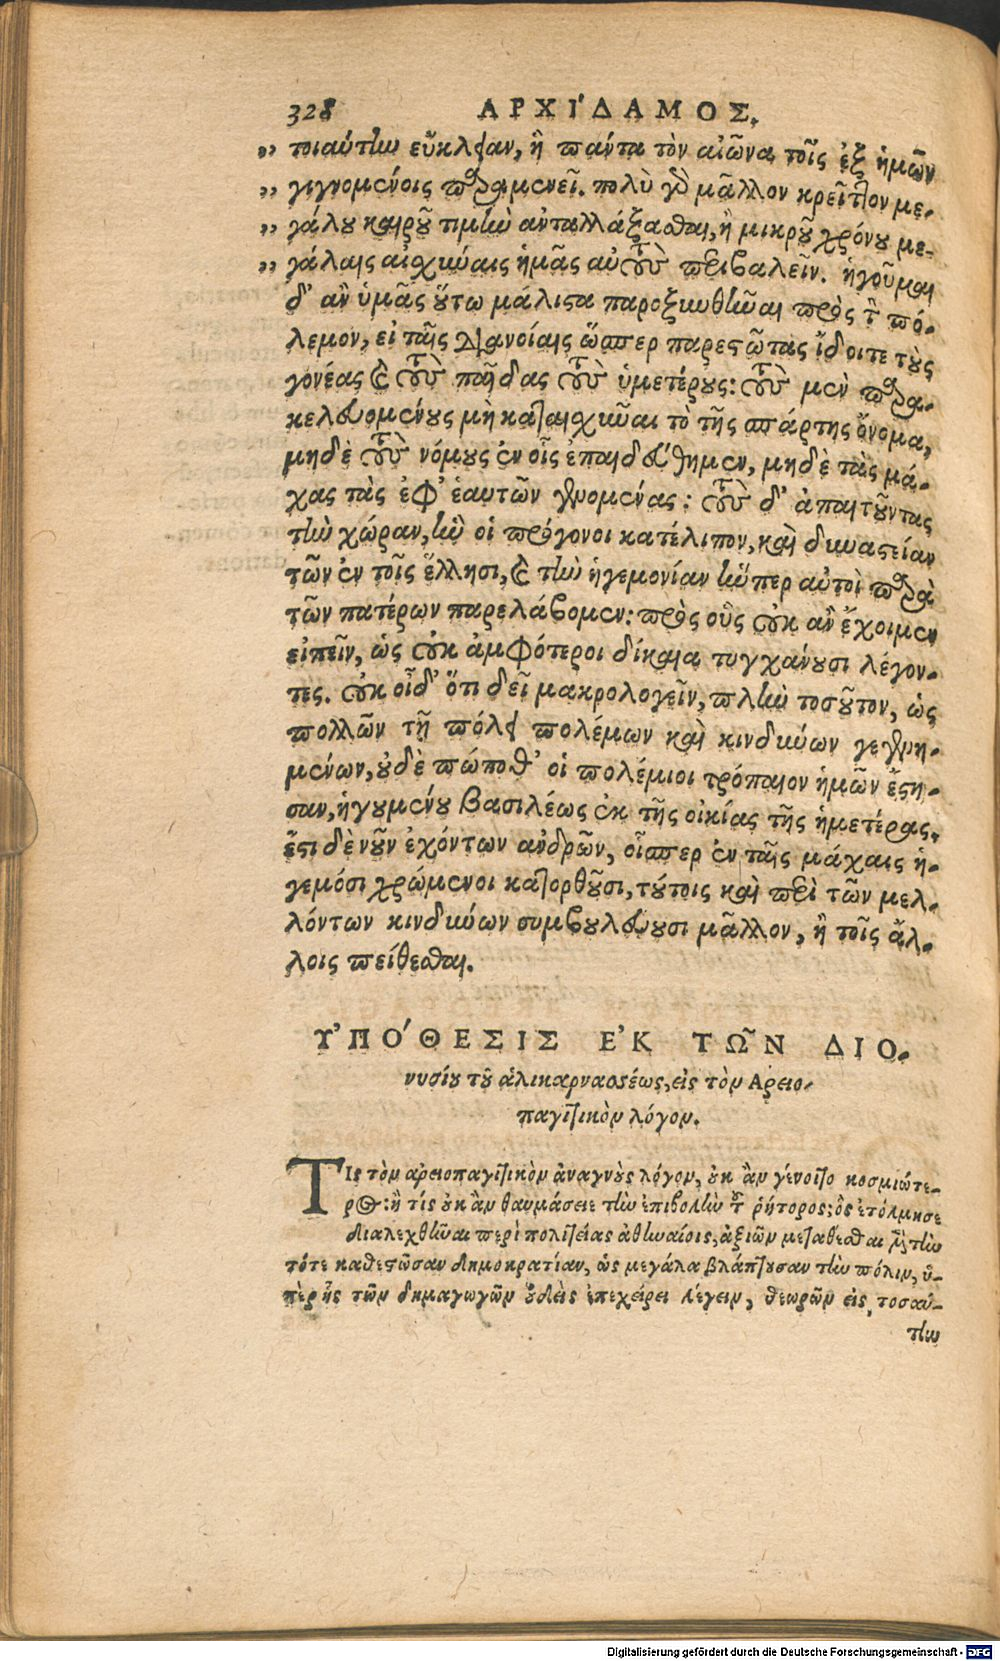 328 ΑΡΧΙ´ΔΑΜΟΣ.
„ τοιαύτην εὔκλειαν, ἢ πάντα τὸν αἰῶνα τοῖς ἐξ ἡμῶν
„ γιγνομένοις παραμενεῖ. πολὺ γὰρ μᾶλλον κρεῖττον με-
„ γάλου καιροῦ τιμὴν ἀνταλλάξασθαι, ἢ μικροῦ χρόνου με-
„ γάλαις αἰσχύναις ἡμᾶς αὐτοὺς περιβαλεῖν. ἡγοῦμαι
δ' ἂν ὑμᾶς οὕτω μάλιστα παροξυνθῆναι πρὸς τὸν πό-
λεμον, εἰ ταῖς διανοίαις ὥσπερ παρεστῶτας ἴδοιτε τοὺς
γονέας καὶ τοὺς παῖδας τοὺς ὑμετέρους: τοὺς μὲν παρα-
κελευομένους μὴ καταισχῦναι τὸ τῆς σπάρτης ὄνομα,
μηδὲ τοὺς νόμους ἐν οἷς ἐπαιδεύθημεν, μηδὲ τὰς μά-
χας τὰς ἐφ' ἑαυτῶν γενομένας: τοὺς δ' ἀπαιτοῦντας
τὴν χώραν, ἣν οἱ πρόγονοι κατέλιπον, καὶ δυναστείαν
τῶν ἐν τοῖς ἕλλησι, καὶ τὴν ἡγεμονίαν ἥνπερ αὐτοὶ παρὰ
τῶν πατέρων παρελάβομεν: πρὸς οὓς οὐκ ἂν ἔχοιμεν
εἰπεῖν, ὡς οὐκ ἀμφότεροι δίκαια τυγχάνουσι λέγον-
τες. οὐκ οἶδ' ὅτι δεῖ μακρολογεῖν, πλὴν τοσοῦτον, ὡς
πολλῶν τῇ πόλει πολέμων καὶ κινδύνων γεγενη-
μένων, οὐδὲ πώποθ' οἱ πολέμιοι τρόπαιον ἡμῶν ἔστη-
σαν, ἡγουμένου βασιλέως ἐκ τῆς οἰκίας τῆς ἡμετέρας.
ἔστι δὲ νοῦν ἐχόντων ἀνδρῶν, οἷσπερ ἐν ταῖς μάχαις ἡ-
γεμόσι χρώμενοι κατορθοῦσι, τούτοις καὶ περὶ τῶν μελ-
λόντων κινδύνων συμβουλεύουσι μᾶλλον, ἢ τοῖς ἄλ-
λοις πείθεσθαι.
ΥΠΟ´ΘΕΣΙΣ Ε᾿Κ ΤΩ͂Ν ΔΙΟ-
νυσίου τοῦ ἁλικαρνασσέως, εἰς τὸν Αρειο-
παγιτικὸν λόγον.
ΤΙς τὸν ἀρειοπαγιτικὸν ἀναγνοὺς λόγον, οὐκ ἂν γένοιτο κοσμιώτε-
ρος: ἢ τίς οὐκ ἂν θαυμάσειε τὴν ἐπιβολὴν τοῦ ῥήτορος; ὃς ἐτόλμησε
διαλεχθῆναι περὶ πολιτείας ἀθηναίοις, ἀξιῶν μεταθέσθαι μὲν τὴν
τότε καθεστῶσαν δημοκρατίαν, ὡς μεγάλα βλάπτουσαν τὴν πόλιν, ὑ-
πὲρ ἧς τῶν δημαγωγῶν οὐδεὶς ἐπεχείρει λέγειν, θεωρῶν εἰς τοσαύ-
την
Digitalisierung gefördert durch die Deutsche Forschungsgemeinschaft - DFG